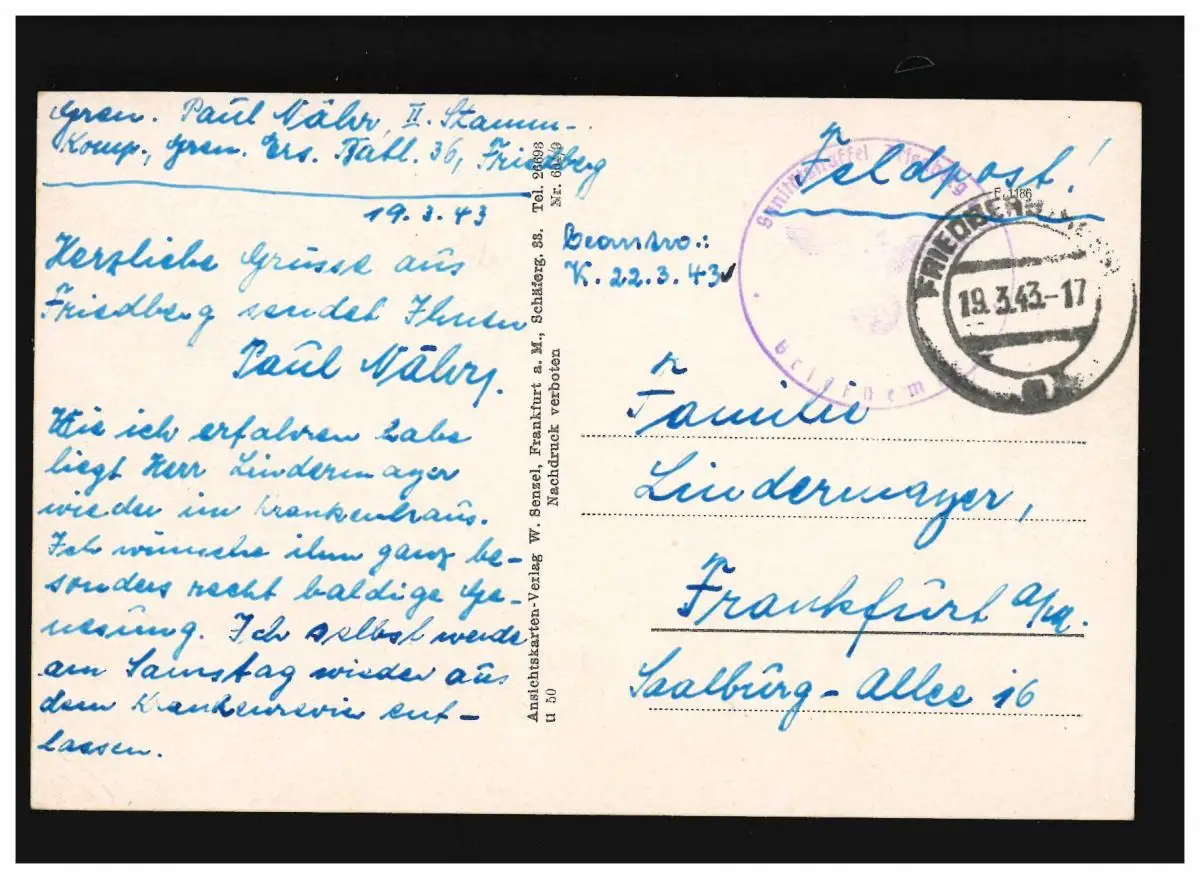 Gren. Paul Nähr, II. Stamm-
Komp., Gren. Ers. Batl. 36, Friedberg
19.3.43
Herzliche Grüsse aus
Friedberg sendet Ihnen
Paul Nähr.
Wie ich erfahren habe
liegt Herr Lindermayer
wieder im Krankenhaus.
Ich wünsche ihm ganz be-
sonders recht baldige Ge-
nesung. Ich selbst werde
am Samstag wieder aus
dem Krankenrevier ent-
lassen.
Ansichtskarten-Verlag W. Senzel, Frankfurt a. M., Schäferg. 33. Tel. 26693
U 50 Nachdruck verboten Nr.
Feldpost!
F 1186
Beantw.:
K. 22.3.43
Sanitätsstaffel
Briefstempel
FRIEDBERG
19.3.43-17
Familie
Lindermayer,
Frankfurt a/M.
Saalburg-Allee 16